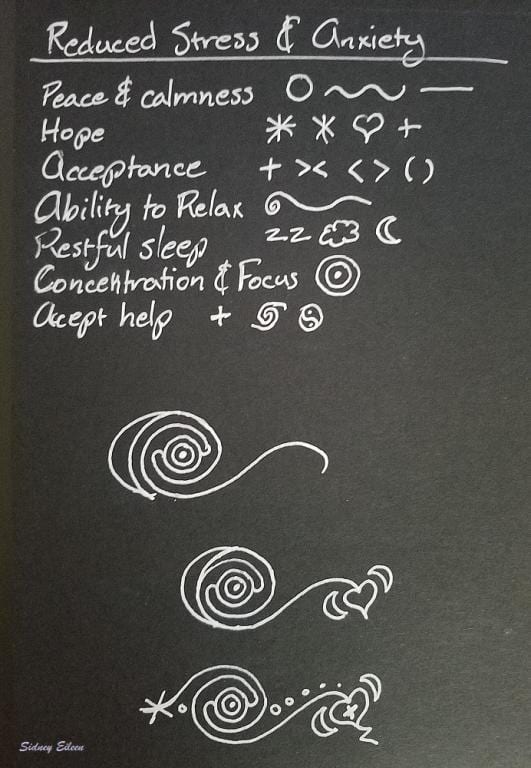 Reduced Stress & Anxiety
Peace & calmness
Hope
Acceptance
Ability to Relax
Restful sleep zz
Concentration & Focus
Accept help
Sidney Eileen